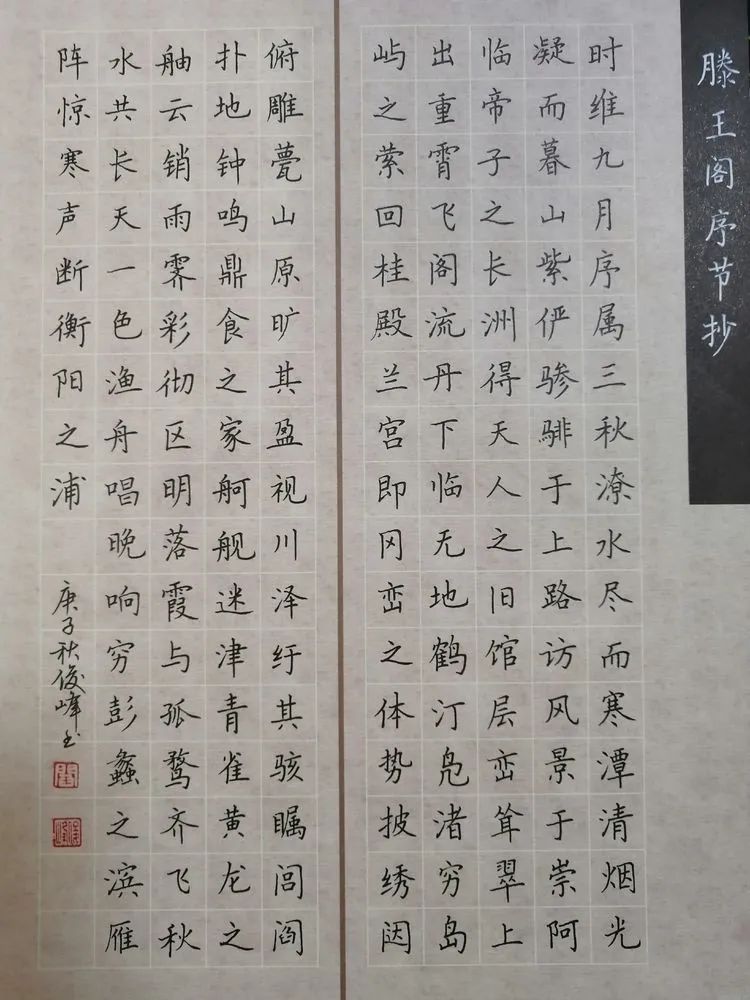 滕王阁序节抄
时维九月序属三秋潦水尽而寒潭清烟光
凝而暮山紫俨骖騑于上路访风景于崇阿
临帝子之长洲得天人之旧馆层峦耸翠上
出重霄飞阁流丹下临无地鹤汀凫渚穷岛
屿之萦回桂殿兰宫即冈峦之体势披绣闼
俯雕甍山原旷其盈视川泽纡其骇瞩闾阎
扑地钟鸣鼎食之家舸舰迷津青雀黄龙之
舳云销雨霁彩彻区明落霞与孤鹜齐飞秋
水共长天一色渔舟唱晚响穷彭蠡之滨雁
阵惊寒声断衡阳之浦
庚子秋俊峰书